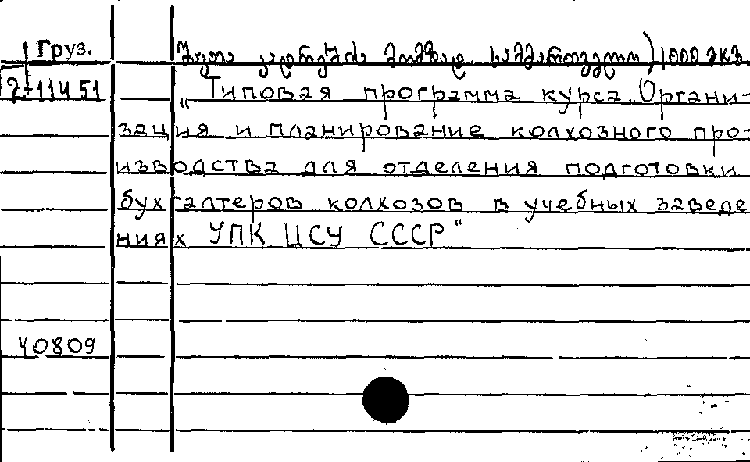 Груз.
1000 экз.
2-11451
„Типовая программа курса „Органи-
зация и планирование колхозного про-
изводства для отделения подготовки
бухгалтеров колхозов в учебных заведе
ниях УПК ЦСУ СССР"
40809